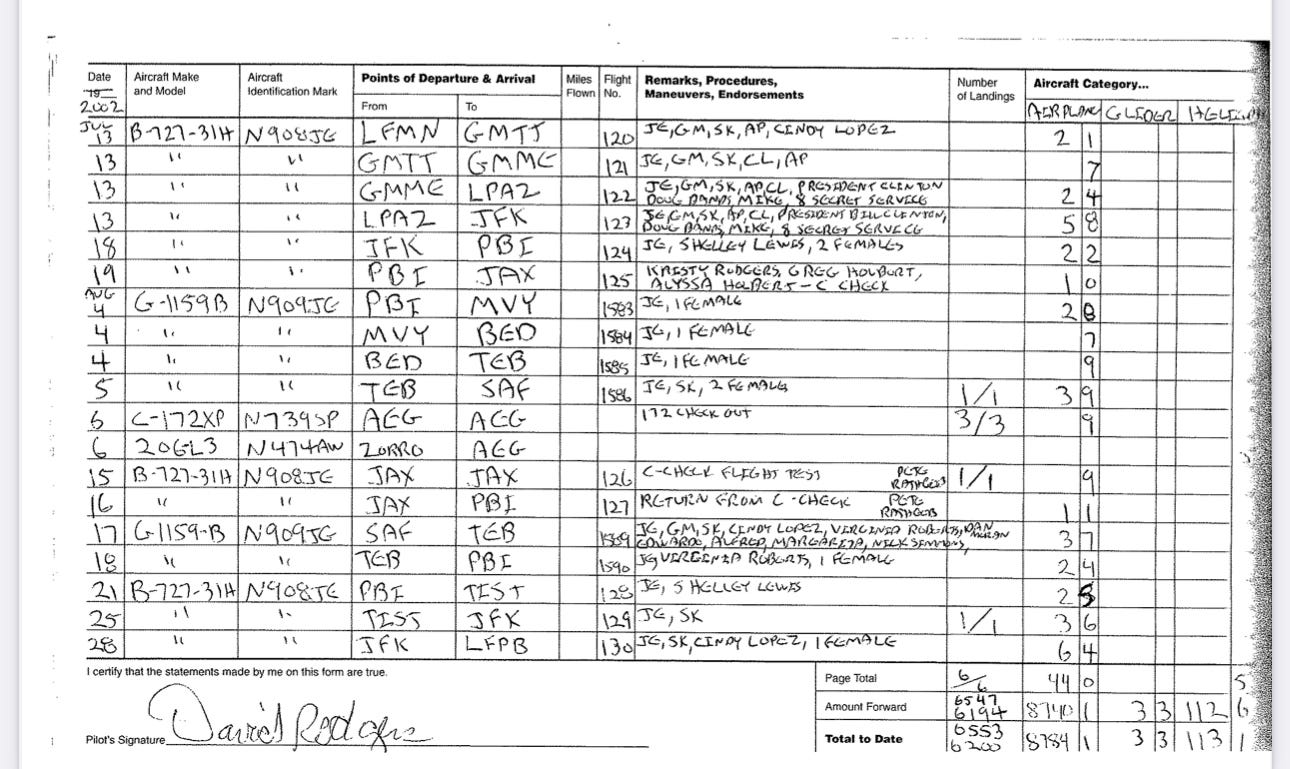 Date Aircraft Make and Model Aircraft Identification Mark Points of Departure & Arrival Miles Flown Flight No. Remarks, Procedures, Maneuvers, Endorsements Number of Landings Aircraft Category...
19 2002 From To AIRPLANE GLIDER
JUL 13 B-727-31H N908JE LFMN GMTT 120 JE, GM, SK, AP, CINDY LOPEZ 2 1
13 " " GMTT GMME 121 JE, GM, SK, CL, AP 7
13 " " GMME LPAZ 122 JE, GM, SK, AP, CL, PRESIDENT CLINTON
DOUG BANDS, MIKE, 8 SECRET SERVICE 2 4
13 " " LPAZ JFK 123 JE, GM, SK, AP, CL, PRESIDENT BILL CLINTON,
DOUG BANDS, MIKE, 8 SECRET SERVICE 5 8
18 " " JFK PBI 124 JE, SHELLEY LEWIS, 2 FEMALES 2 2
19 " " PBI JAX 125 KRISTY RODGERS, GREG HOLBERT,
ALYSSA HOLBERT - C CHECK 1 0
AUG 4 G-1159B N909JE PBI MVY 1583 JE, 1 FEMALE 2 8
4 " " MVY BED 1584 JE, 1 FEMALE 7
4 " " BED TEB 1585 JE, 1 FEMALE 9
5 " " TEB SAF 1586 JE, SK, 2 FEMALES 1/1 3 9
6 C-172XP N739SP AEG AEG 172 CHECK OUT 3/3 9
6 206L3 N474AW ZORRO AEG
15 B-727-31H N908JE JAX JAX 126 C-CHECK FLIGHT TEST PETE RATHGEB 1/1 9
16 " " JAX PBI 127 RETURN FROM C-CHECK PETE RATHGEB 1 1
17 G-1159-B N909JE SAF TEB 1589 JE, GM, SK, CINDY LOPEZ, VIRGINIA ROBERTS, DAN MORAN
EDWARDO, ALFRED, MARGARITA, NICK SIMMONS, 3 7
18 " " TEB PBI 1590 JE, VIRGINIA ROBERTS, 1 FEMALE 2 4
21 B-727-31H N908JE PBI TIST 128 JE, SHELLEY LEWIS 2
25 " " TIST JFK 129 JE, SK 1/1 3 6
28 " " JFK LFPB 130 JE, SK, CINDY LOPEZ, 1 FEMALE 6 4
I certify that the statements made by me on this form are true. Page Total 6/6 44 0 5
Amount Forward 6547 6194 8740 1 3 3 112 6
Pilot's Signature David Rodgers Total to Date 6553 6200 8784 1 3 3 113 1